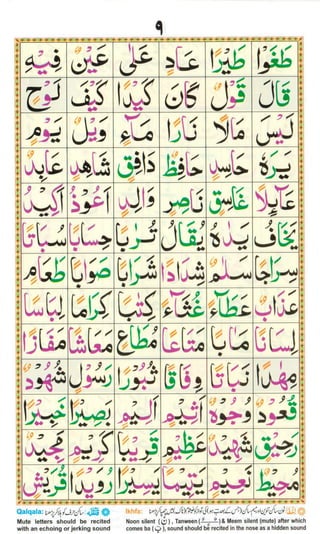 ٩
طَغَوْا طَيْرًا عَادٍ عَلٰى عَيْنٌ فِيْهِ
قَالَ قَوْلٌ كَانَ كَيْدًا كَيْفَ لَوْحٍ
لَيْسَ مَالًا نَارًا مَآءٍ وَيْلٌ يَوْمٍ
يَرَهٗ حَاسِدٍ حَافِظٌ دَافِقٍ شَاهِدٍ عَابِدٌ
عَآئِلًا غَاسِقٍ نَاصِرٍ وَالِدٍ اَعُوْذُ اَكِيْدُ
يَخَافُ يَدٰهُ يُقَالُ تُرَابًا حِسَابًا سُبَاتًا
سِرَاجًا سَلٰمٌ شِدَادًا شَرَابًا صَوَابًا طَعَامٍ
عَذَابٌ عَطَآءً غُثَآءً كِتٰبًا كِرَامًا لِبَاسًا
لِسَانًا مَاٰبًا مَتَاعًا مُطَاعٍ مَعَاشًا مَفَازًا
مِهٰدًا نَبَاتًا وِفَاقًا ثُبُوْرًا رَسُوْلٌ شُهُوْدٌ
قُعُوْدٌ وُجُوْهٌ اَثِيْمٍ اَلِيْمٍ بَصِيْرًا خَبِيْرًا
رَحِيْقٍ شَهِيْدٌ عَظِيْمٍ قَرِيْبًا كَرِيْمٍ مَجِيْدٌ
مُحِيْطٌ نَعِيْمٍ يَتِيْمًا يَسِيْرًا رُوَيْدًا قُرَيْشٍ
Qalqala:
Mute letters should be recited
with an echoing or jerking sound
Ikhfa:
Noon silent (نْ), Tanween & Meem silent (mute) after which
comes ba (ب), sound should be recited in the nose as a hidden sound